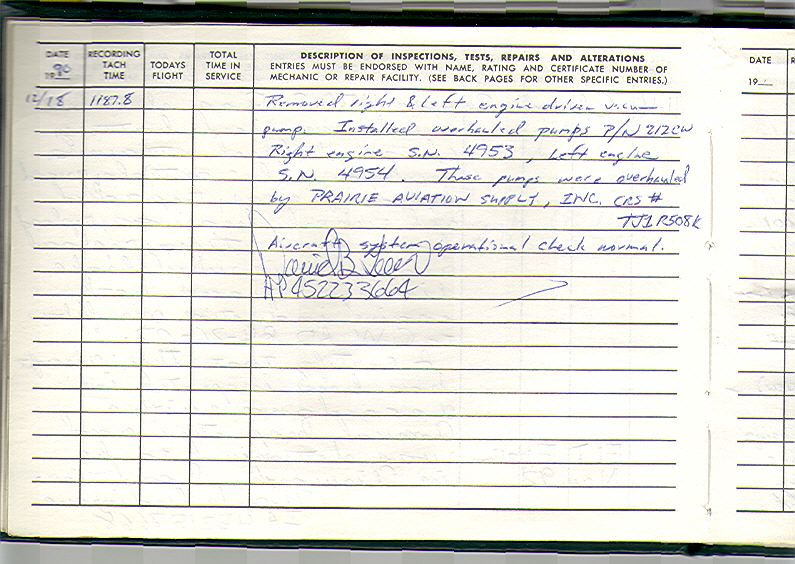 DATE
1990
RECORDING
TACH
TIME
TODAYS
FLIGHT
TOTAL
TIME IN
SERVICE
DESCRIPTION OF INSPECTIONS, TESTS, REPAIRS AND ALTERATIONS
ENTRIES MUST BE ENDORSED WITH NAME, RATING AND CERTIFICATE NUMBER OF
MECHANIC OR REPAIR FACILITY. (SEE BACK PAGES FOR OTHER SPECIFIC ENTRIES.)
DATE
19
12/18 1187.8 Removed right & left engine driven
pump. Installed overhauled pumps P/N 212CW
Right engine S.N. 4953, Left engine
S.N. 4954. These pumps were overhauled
by PRAIRIE AVIATION SUPPLY, INC. CRS #
TJ1R508K
Aircraft system operational check normal.
AP452233664